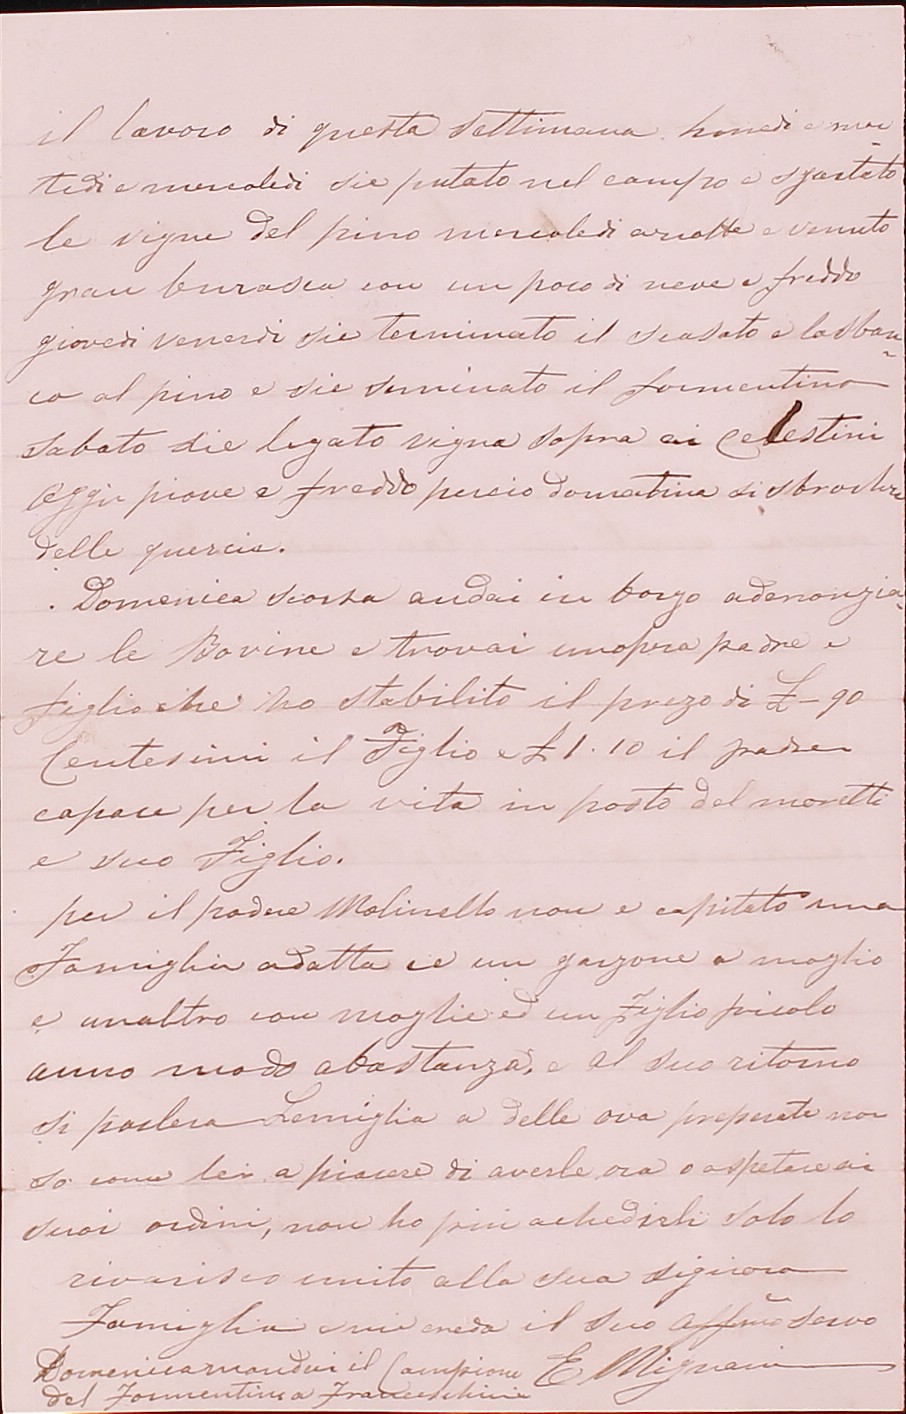 il lavoro di questa settimana lunedi e mar
tedi e mercoledi sie putato nel campo e sgartato
le vigne del pino mercoledi a notte e venuto
gran burasca con un poco di neve e freddo
giovedi venerdi sie terminato il scasato e lo sban
co al pino e sie seminato il formentino
sabato sie legato vigna sopra ai Celestini
oggi piove e freddo percio domatina si sbrochera
delle quercie.
Domenica scorsa andai in borgo adenonzia
re le Bovine e trovai unopra padre e
Figlio che ho stabilito il prezo di £ - 90
Centesimi il Figlio e £ 1.10 il padre
capace per la vita in posto del moretti
e suo Figlio.
per il podere Molinello non e capitato una
Famiglia adatta ce un garzone a moglie
e unaltro con moglie ed un Figlio picolo
anno modo abastanza, e al suo ritorno
si parlera Lemiglia a delle ova preparate non
so come lei a piacere di averle ora o aspetare ai
suoi ordini, non ho piu achedirli solo lo
riverisco unito alla sua signora
Famiglia e mi creda il suo Affmo servo
Domenica mandai il Campione E Mignani
del Formentino a Franceschini